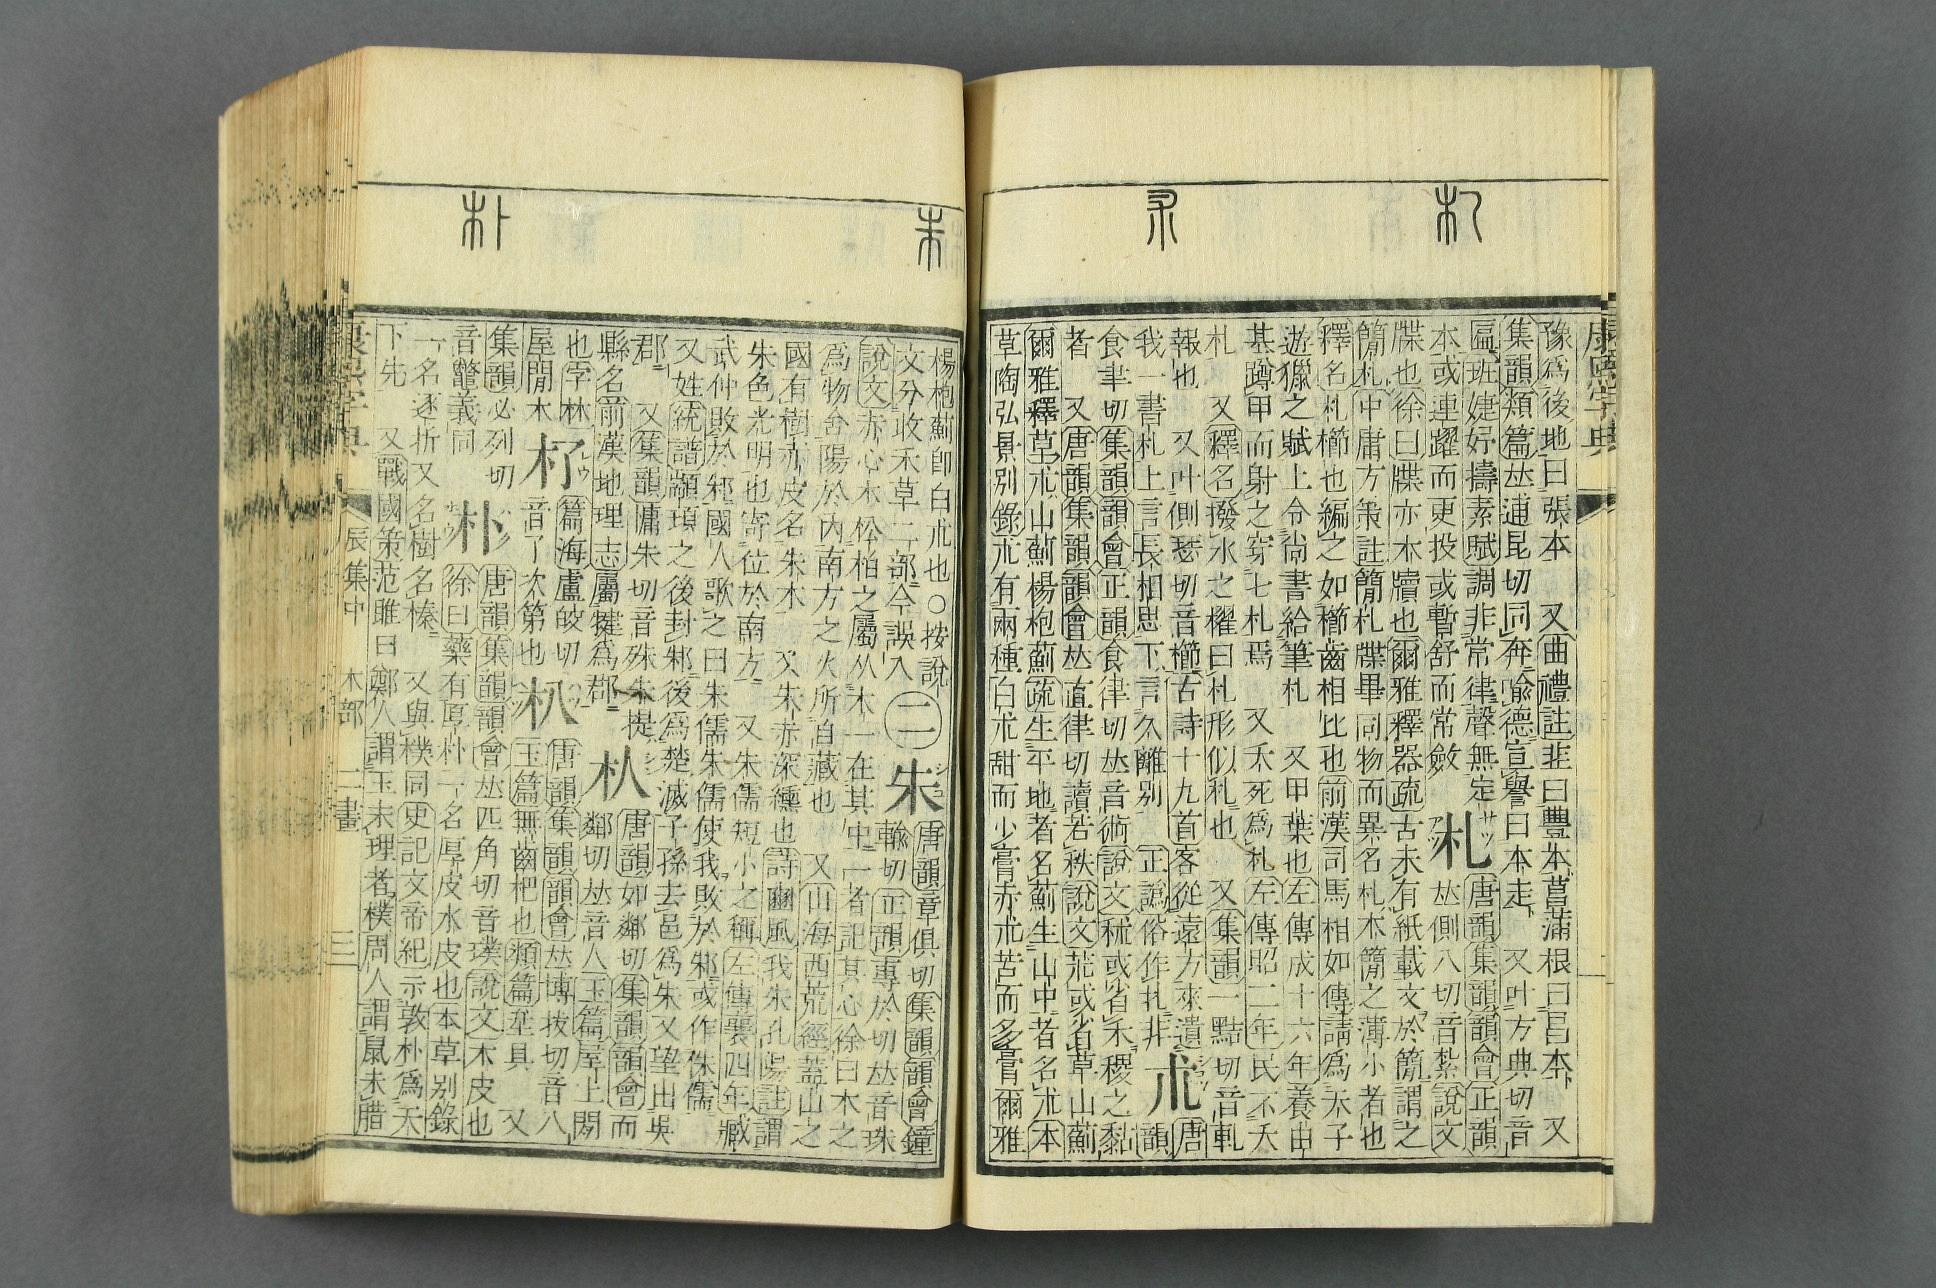 康熙字典
豫爲後地曰張本 又曲禮註韭曰豐本菖蒲根曰昌本 又
集韻類篇𠀤逋昆切同奔喩德宣譽曰本走 又叶方典切音
匾班婕妤擣素賦調非常律聲無定
本或連躍而更投或暫舒而常斂
札
サツ
唐韻集韻韻會正韻
𠀤側八切音紮說文
牒也徐曰牒亦木牘也爾雅釋器疏古未有紙載文於簡謂之
簡札中庸方策註簡札牒畢同物而異名札木簡之薄小者也
釋名札櫛也編之如櫛齒相比也前漢司馬相如傳請爲天子
遊獵之賦上令尙書給筆札 又甲葉也左傳成十六年養由
基蹲甲而射之穿七札焉 又夭死爲札左傳昭二年民不夭
札 又釋名撥水之櫂曰札形似札也 又集韻一點切音軋
報也 又叶側瑟切音櫛古詩十九首客從遠方來遺
我一書札上言長相思下言久離別 正譌俗作扎非
朮
唐
韻
食聿切集韻韻會正韻食律切𠀤音術說文秫或省禾稷之黏
者 又唐韻集韻韻會𠀤直律切讀若秩說文茮或省草山薊
爾雅釋草朮山薊楊枹薊疏生平地者名薊生山中者名朮本
草陶弘景別錄朮有兩種白朮甜而少膏赤朮苦而多膏爾雅
楊枹薊卽白朮也○按說
文分收禾草一部今誤入
二
朱
シユ
唐韻章俱切集韻韻會鐘
輸切正韻專於切𠀤音珠
說文赤心木松柏之屬从木一在其中一者記其心徐曰木之
爲物含陽於內南方之火所自藏也 又山海西荒經蓋山之
國有樹赤皮名朱木 又朱赤深纁也詩豳風我朱孔陽註謂
朱色光明也寄位於南方 又朱儒短小之稱左傳襄四年臧
武仲敗於邾國人歌之曰朱儒朱儒使我敗於邾或作侏儒
又姓統譜顓頊之後封邾後爲楚滅子孫去邑爲朱又望出吳
郡 又集韻慵朱切音殊朱提
縣名前漢地理志屬犍爲郡
朲
唐韻如鄰切集韻韻會而
鄰切𠀤音人玉篇屋上閒
也字林
屋閒木
朾
篇海盧皎切
音了次第也
朳
唐韻集韻韻會𠀤博拔切音八
玉篇無齒杷也類篇𦭞具 又
集韻必列切
音鼈義同
朴
唐韻集韻韻會𠀤匹角切音璞說文木皮也
徐曰藥有厚朴一名厚皮水皮也本草別錄
一名逐折又名樹名榛 又與樸同史記文帝紀示敦朴爲天
下先 又戰國策范雎曰鄭人謂玉未理者樸周人謂鼠未腊
辰集中 木部 二畫 三